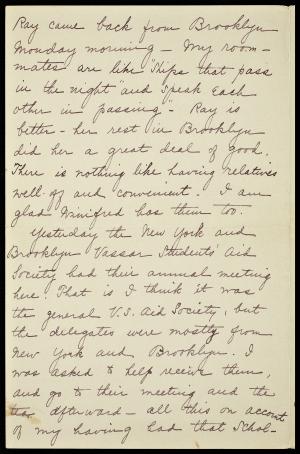 Ray came back from Brooklyn
Monday morning - My room-
mates are like "ships that pass
in the night" and speak each
other in passing" - Ray is
better - her rest in Brooklyn
did her a great deal of good.
There is nothing like having relatives
well-off and convenient. I am
glad Winifred has them too.
Yesterday the New York and
Brooklyn Vassar Students' Aid
Society had their annual meeting
here. That is I think it was
the general V.S. Aid Society, but
the delegates were mostly from
New York and Brooklyn. I
was asked to help receive them,
and go to their meeting and the
tea afterward - all this on account
of my having had that Schol-